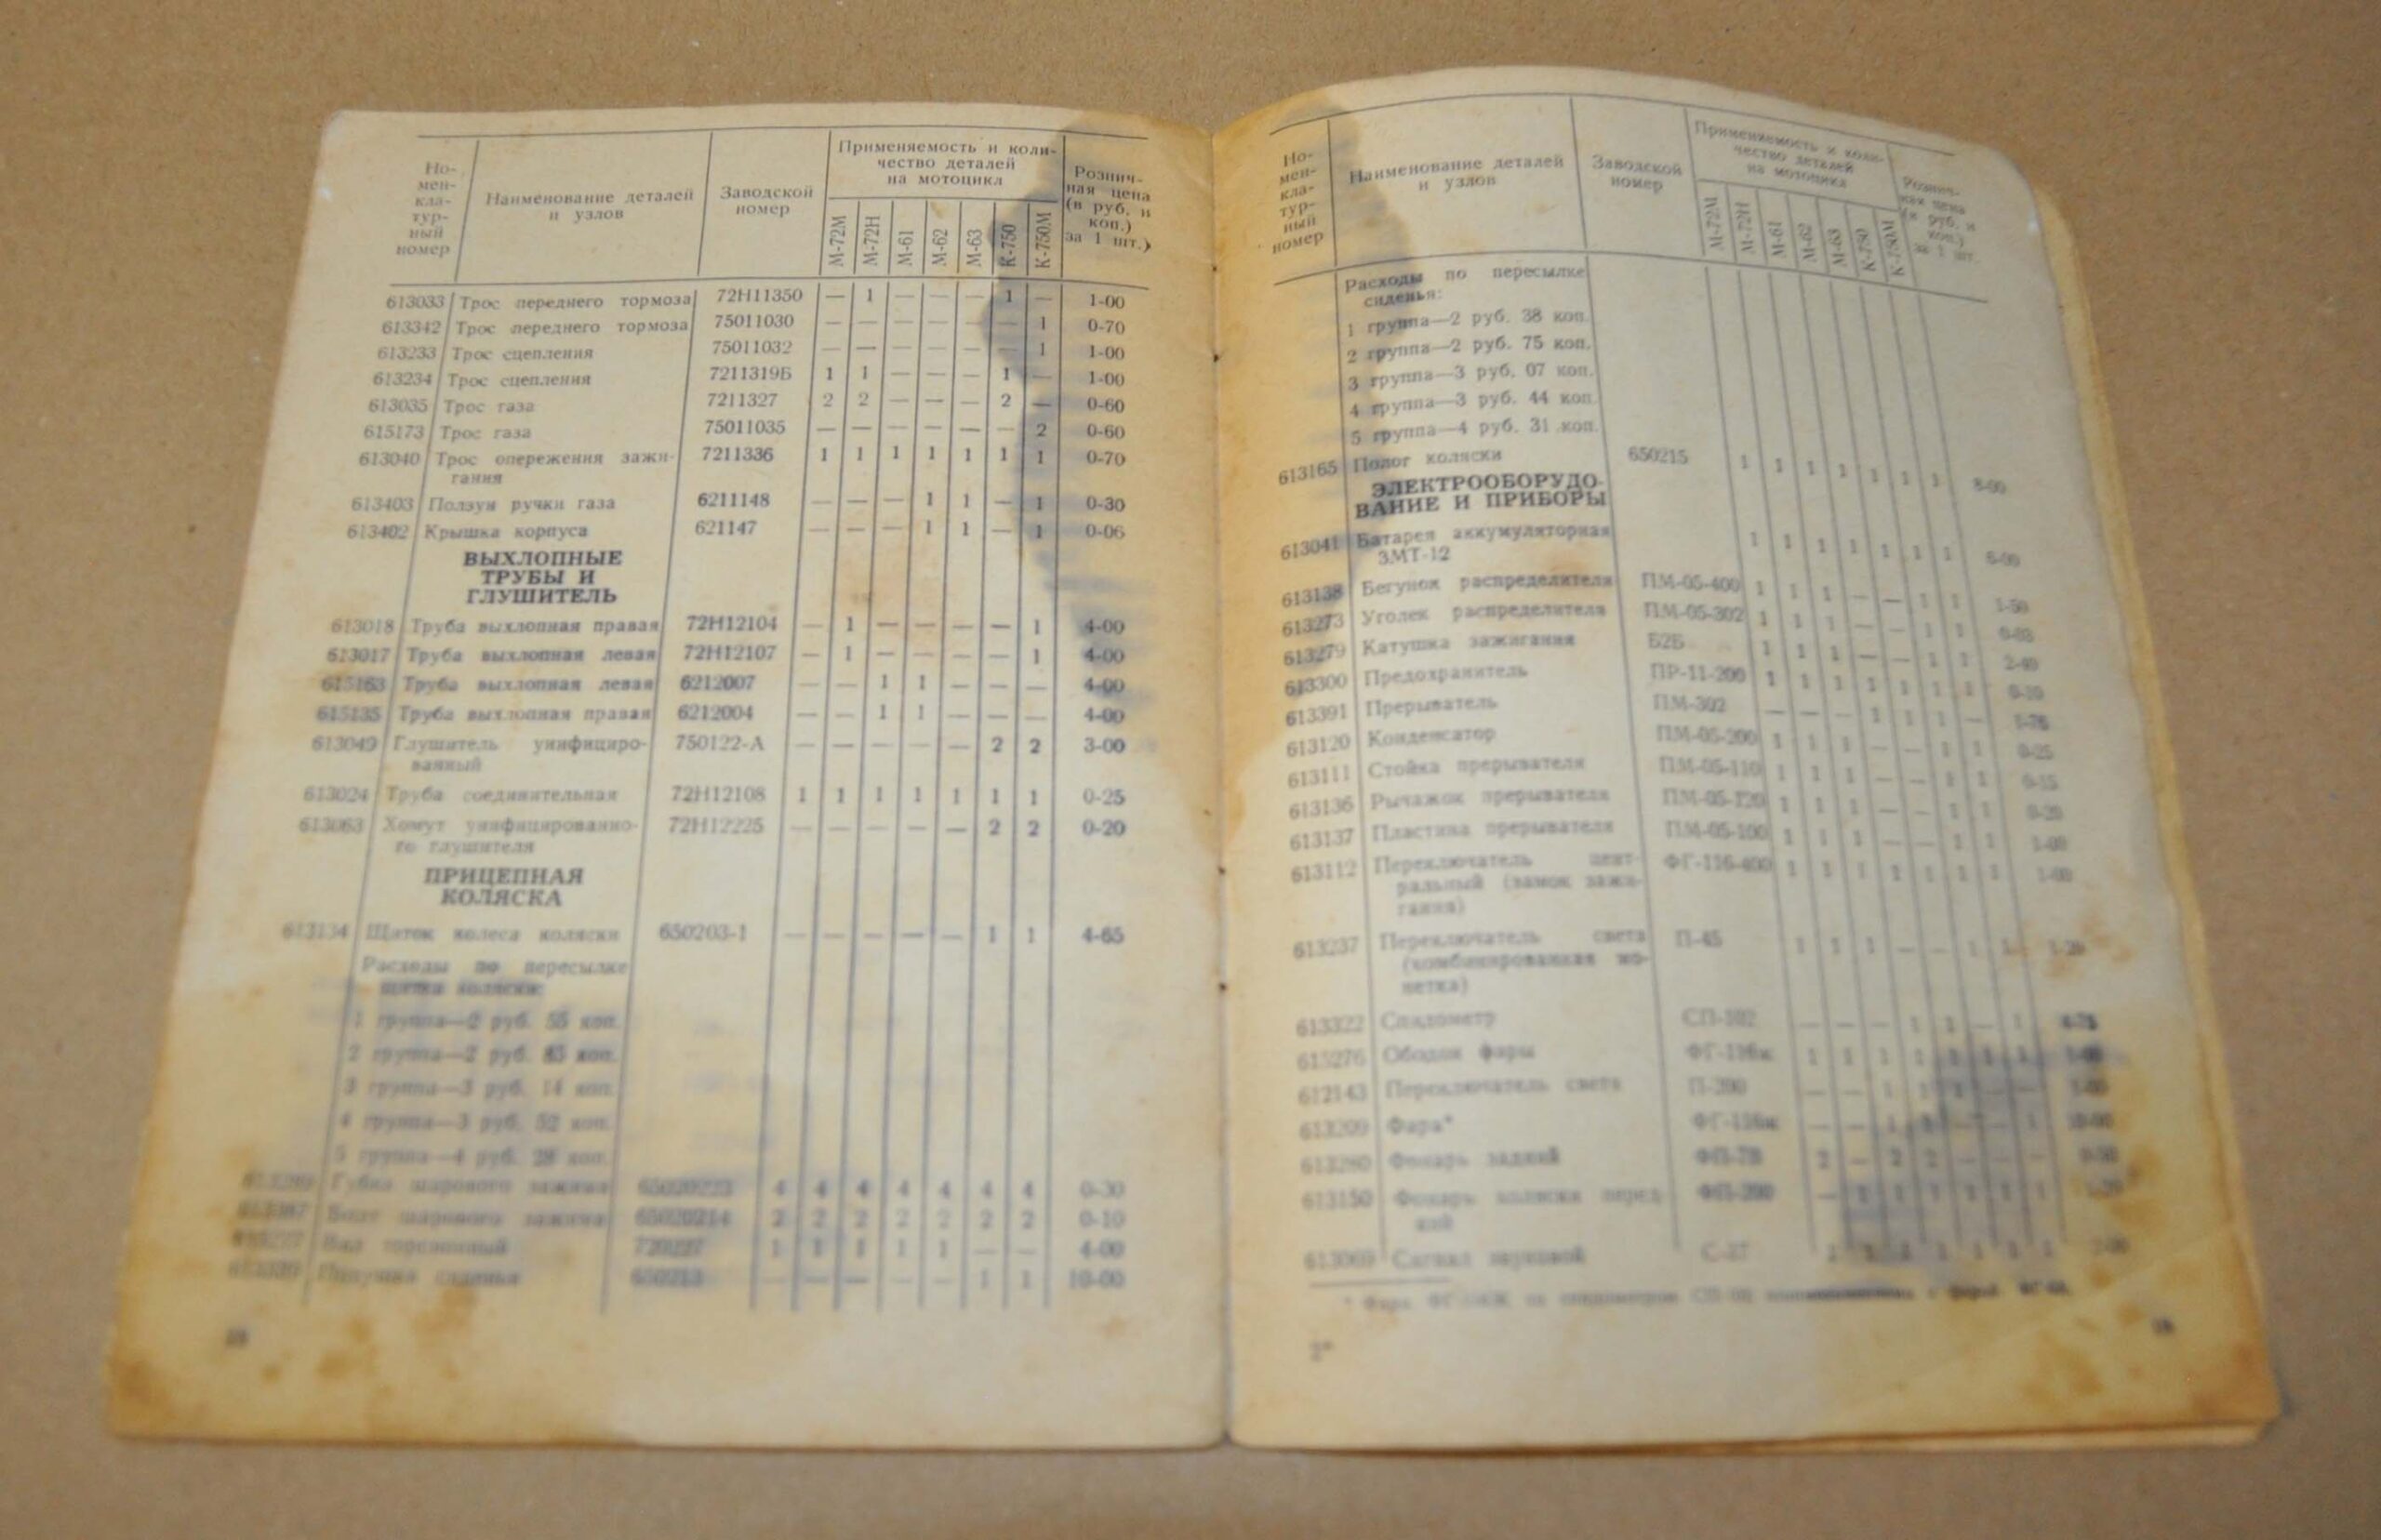 Но-
мен-
кла-
тур-
ный
номер
Наименование деталей
и узлов
Заводской
номер
Применяемость и коли-
чество деталей
на мотоцикл
М-72М
М-72Н
М-61
М-62
М-63
К-750
К-750М
Рознич-
ная цена
(в руб. и
коп.)
за 1 шт.)
613033 Трос переднего тормоза 72Н11350 — 1 — — — 1 — 1-00
613342 Трос переднего тормоза 75011030 — — — — — — 1 0-70
613233 Трос сцепления 75011032 — — — — — — 1 1-00
613234 Трос сцепления 7211319Б 1 1 — — — 1 — 1-00
613035 Трос газа 7211327 2 2 — — — 2 — 0-60
615173 Трос газа 75011035 — — — — — — 2 0-60
613040 Трос опережения зажи- 7211336 1 1 1 1 1 1 1 0-70
гания
613403 Ползун ручки газа 6211148 — — — 1 1 — 1 0-30
613402 Крышка корпуса 621147 — — — 1 1 — 1 0-06
ВЫХЛОПНЫЕ
ТРУБЫ И
ГЛУШИТЕЛЬ
613018 Труба выхлопная правая 72Н12104 — 1 — — — — 1 4-00
613017 Труба выхлопная левая 72Н12107 — 1 — — — — 1 4-00
615163 Труба выхлопная левая 6212007 — — 1 1 — — — 4-00
615135 Труба выхлопная правая 6212004 — — 1 1 — — — 4-00
613049 Глушитель унифициро- 750122-А — — — — — 2 2 3-00
ванный
613024 Труба соединительная 72Н12108 1 1 1 1 1 1 1 0-25
613063 Хомут унифицированно- 72Н12225 — — — — — 2 2 0-20
го глушителя
ПРИЦЕПНАЯ
КОЛЯСКА
613134 Щиток колеса коляски 650203-1 — — — — — 1 1 4-65
Расходы по пересылке
щитка коляски:
1 группа—2 руб. 55 коп.
2 группа—2 руб. коп.
3 группа—3 руб. 14 коп.
4 группа—3 руб. 52 коп.
5 группа—4 руб. 28 коп.
Губка шарового зажима 4 4 4 4 4 4 4 0-30
Болт шарового зажима 65020214 2 2 2 2 2 2 2 0-10
Вал торсионный 1 1 1 1 1 — — 4-00
Подушка сиденья 650213 — — — — — 1 1 10-00
18
Но-
мен-
кла-
тур-
ный
номер
Наименование деталей
и узлов
Заводской
номер
Применяемость и коли-
чество деталей
на мотоцикл
М-72М
М-72Н
М-61
М-62
М-63
К-750
К-750М
Рознич-
ная цена
(в руб. и
коп.)
за 1 шт.
Расходы по пересылке
сиденья:
1 группа—2 руб. 38 коп.
2 группа—2 руб. 75 коп.
3 группа—3 руб. 07 коп.
4 группа—3 руб. 44 коп.
5 группа—4 руб. 31 коп.
613165 Полог коляски 650215 1 1 1 1 1 1 1
ЭЛЕКТРООБОРУДО-
ВАНИЕ И ПРИБОРЫ
613041 Батарея аккумуляторная 1 1 1 1 1 1 1
3МТ-12
613138 Бегунок распределителя ПМ-05-400 1 1 1 — — 1 1 1-50
613273 Уголек распределителя ПМ-05-302 1 1 1 — — 1 1 0-03
613279 Катушка зажигания Б2Б 1 1 1 — — 1 1 2-40
613300 Предохранитель ПР-11-200 1 1 1 1 1 1 1 0-10
613391 Прерыватель ПМ-302 — — — 1 1 1 —
613120 Конденсатор ПМ-05-200 1 1 1 — — 1 1 0-25
613111 Стойка прерывателя ПМ-05-110 1 1 1 — — 1 1 0-15
613136 Рычажок прерывателя ПМ-05-120 1 1 1 — — 1 1 0-20
613137 Пластина прерывателя ПМ-05-100 1 1 1 — — 1 1 1-00
613112 Переключатель цент- ФГ-116-400 1 1 1 1 1 1 1 1-00
ральный (замок зажи-
гания)
613237 Переключатель света П-45 1 1 1 — — 1 1 1-20
(комбинированная мо-
нетка)
613322 Спидометр СП-102 — — — 1 1 — 1
615276 Ободок фары 1 1 1 1 1 1 1
612143 Переключатель света П-200 — — 1 1 1 — —
613209 Фара* — — 1 1 — — 1
613260 Фонарь задний 2 — 2 2 — — —
613150 Фонарь коляски перед- ФП-200 — 1 1 1 1 1 1
ний
613069 Сигнал звуковой С-37 1 1 1 1 1 1 1
2*
19